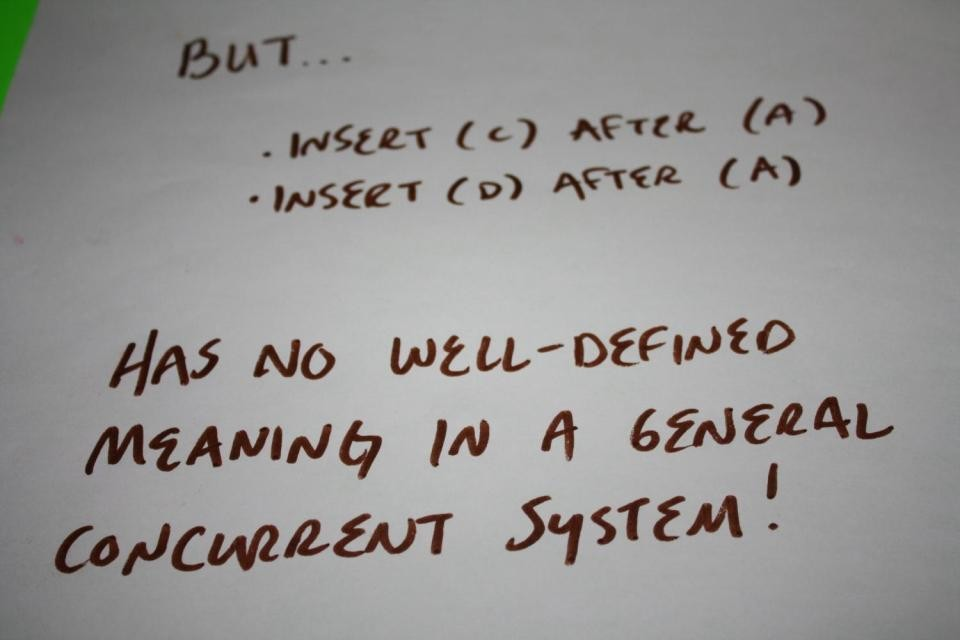 BUT...
. INSERT (C) AFTER (A)
. INSERT (D) AFTER (A)
HAS NO WELL-DEFINED
MEANING IN A GENERAL
CONCURRENT SYSTEM!